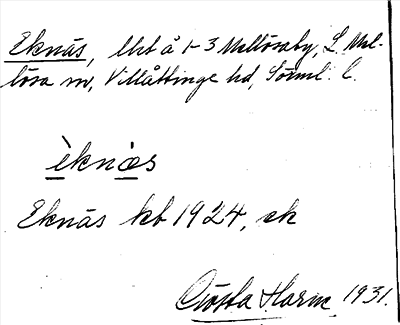 Eknäs, lht å 1-3 Mellösaby, L. Mel-
lösa sn, Villåttinge hd, Sörml. l.
èknæs
Eknäs kb 1924, sk
Gösta Harm 1931.